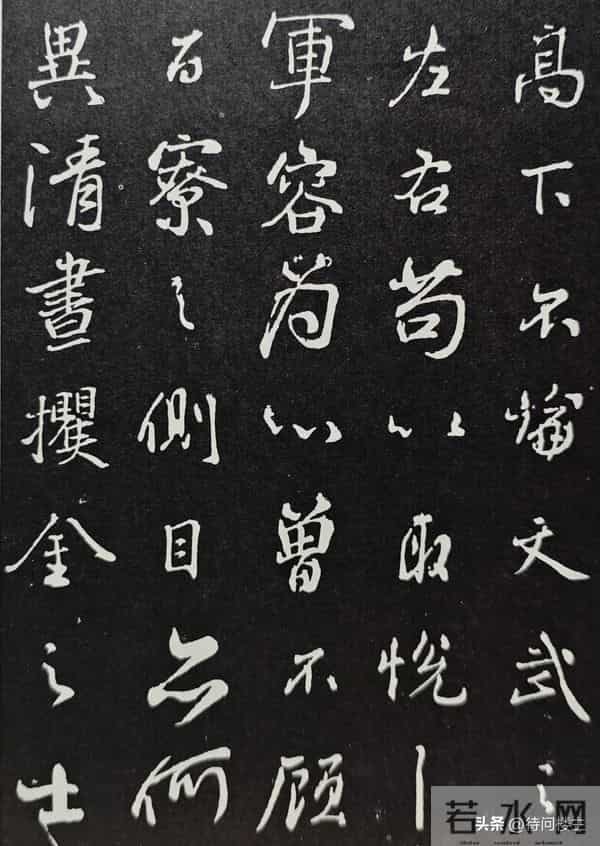 高下不論文武之
左右苟以取悅
軍容為心曾不顧
百寮之側目亦何
異清晝攫金之士
若水网
头条 @待问楼主